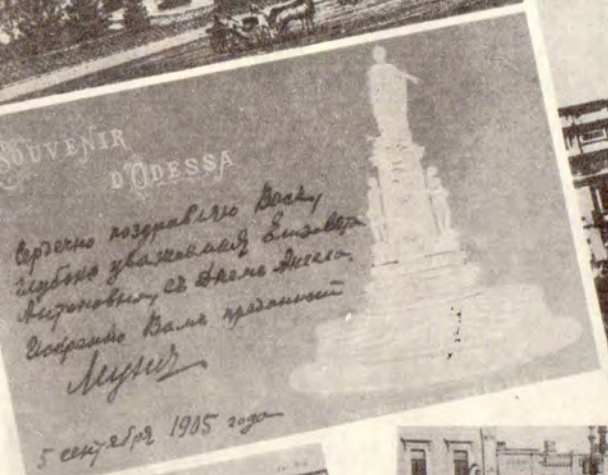 SOUVENIR
D'ODESSA
Сердечно поздравляю Васъ,
глубоко уважаемая Елизавета
Антоновна, съ Днемъ Ангела.
Искренно Вамъ преданный
5 сентября 1905 года